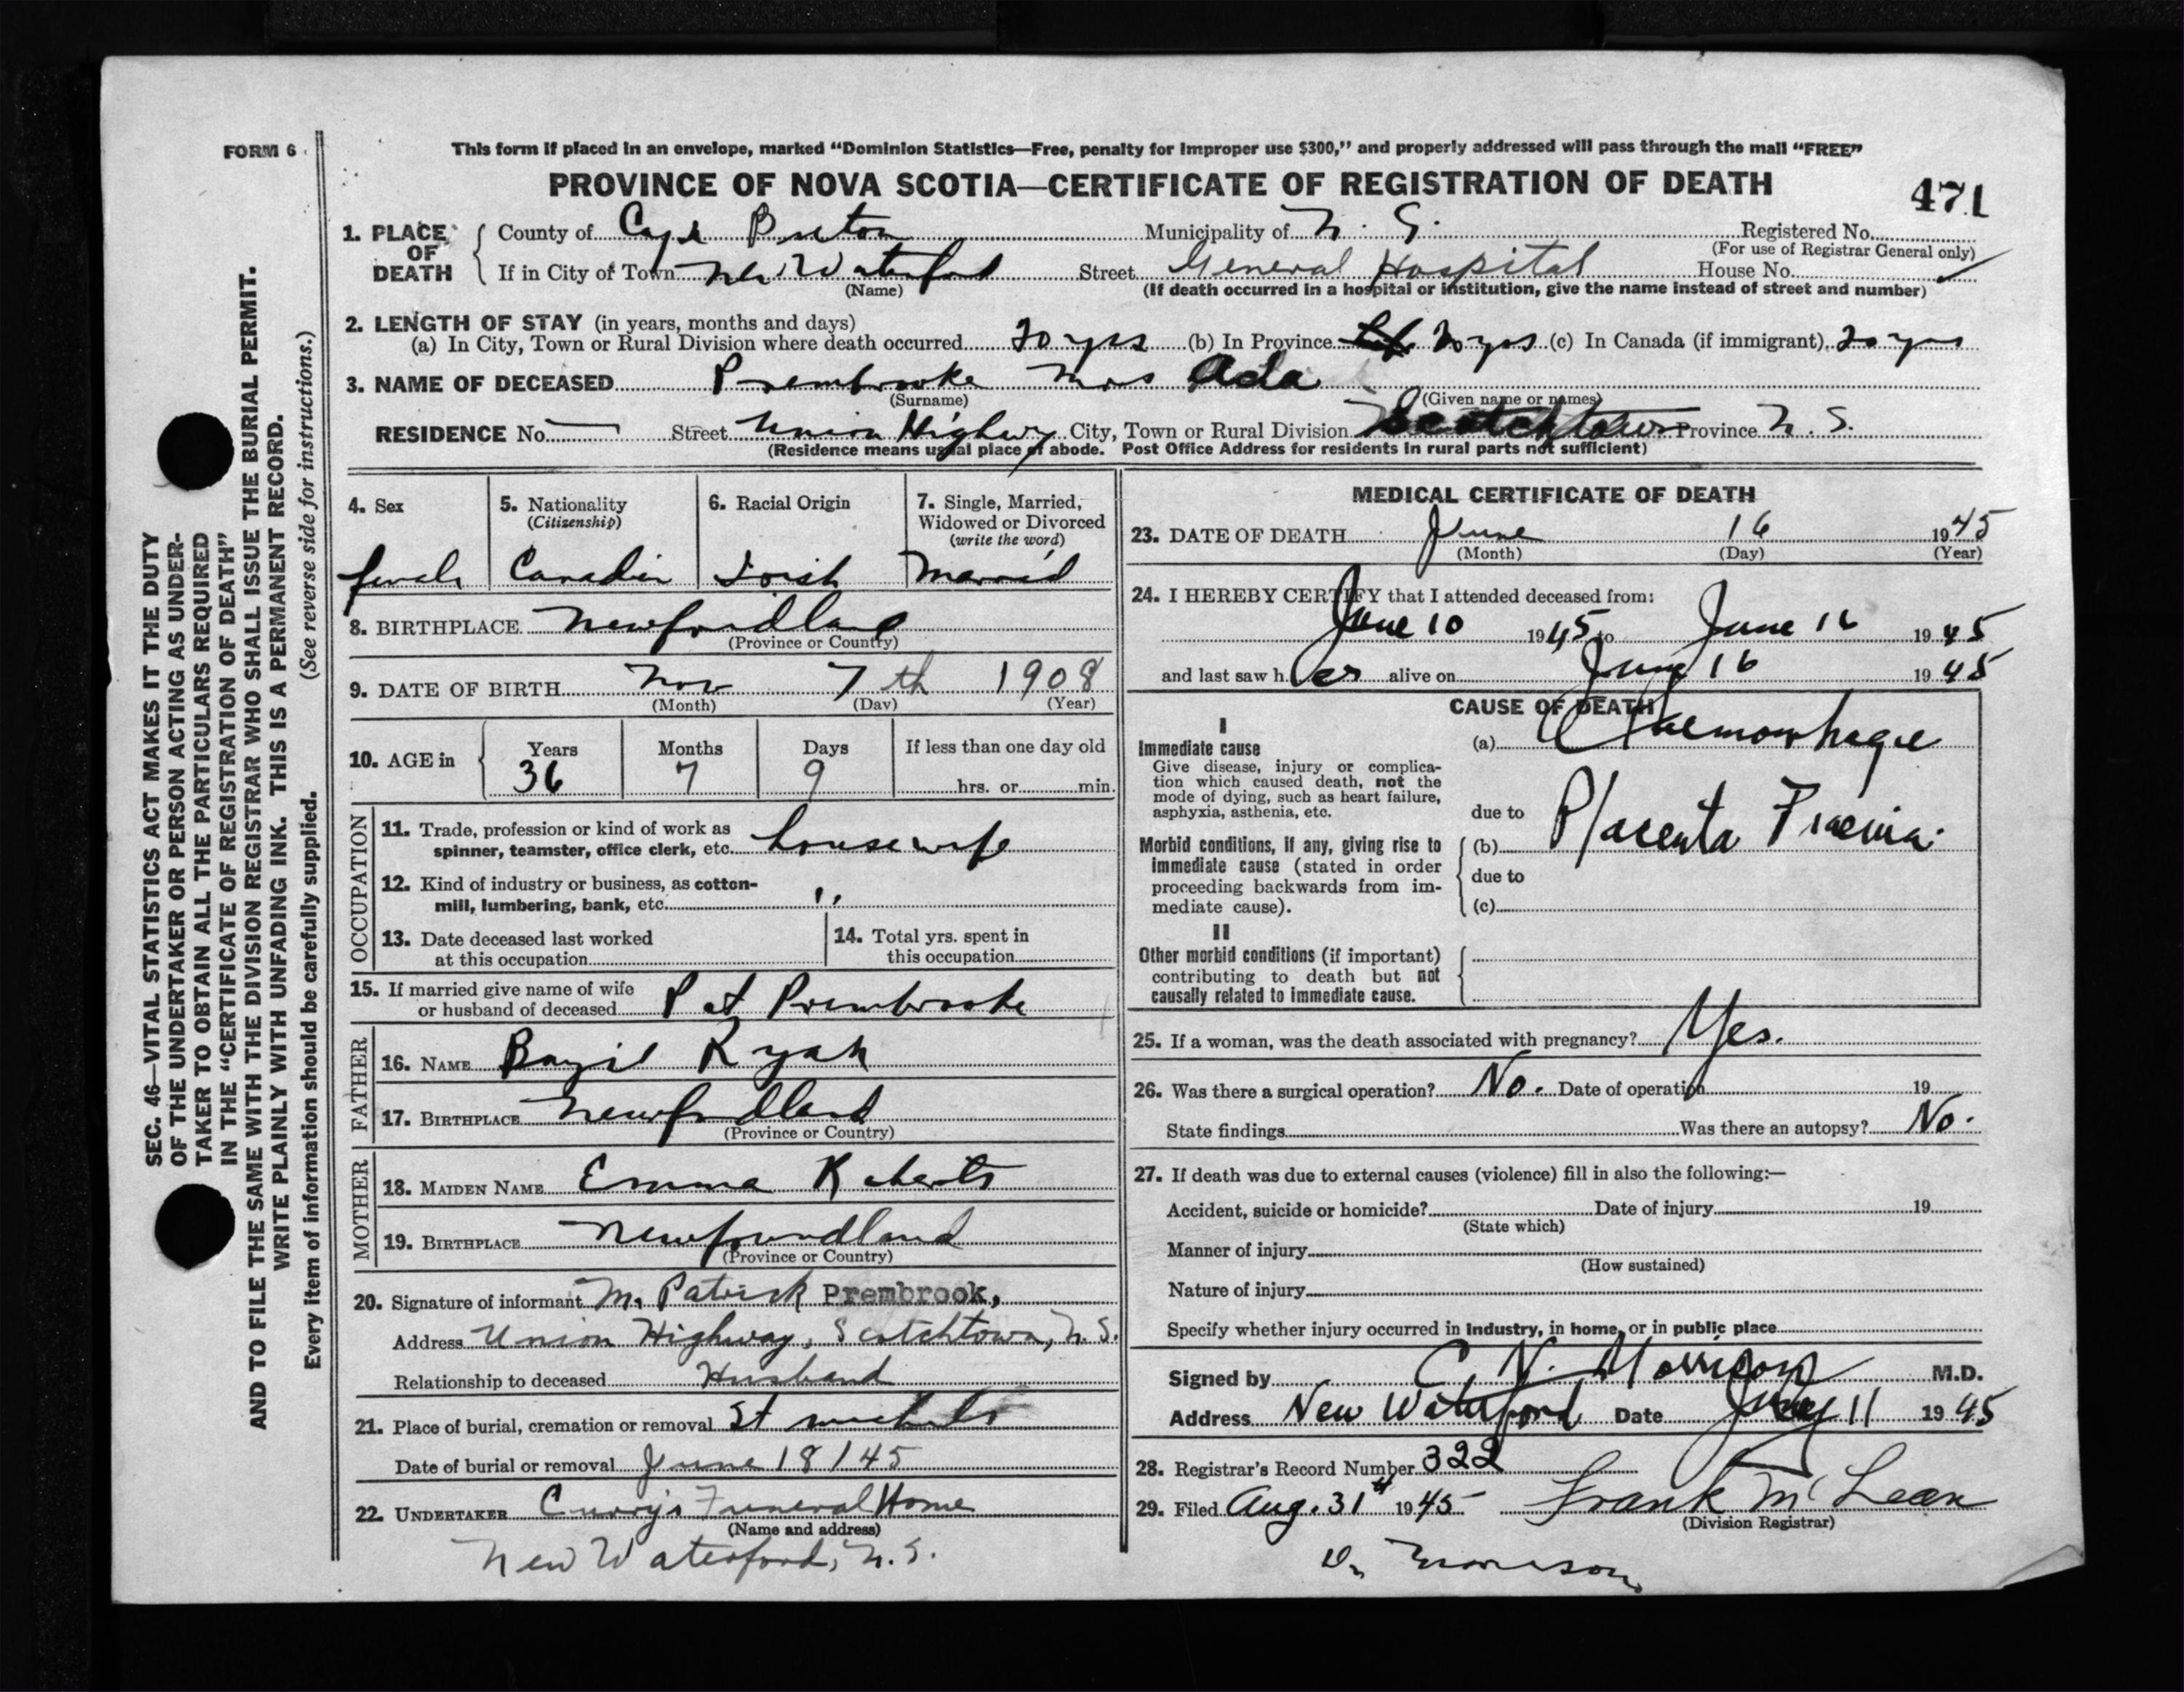 FORM 6
This form if placed in an envelope, marked “Dominion Statistics—Free, penalty for improper use $300,” and properly addressed will pass through the mail “FREE”
PROVINCE OF NOVA SCOTIA—CERTIFICATE OF REGISTRATION OF DEATH
471
1. PLACE OF DEATH
County of Cape Breton Municipality of N. S. Registered No.
(For use of Registrar General only)
If in City or Town New Waterford Street General Hospital House No.
(Name) (If death occurred in a hospital or institution, give the name instead of street and number)
2. LENGTH OF STAY (in years, months and days)
(a) In City, Town or Rural Division where death occurred 20 yrs (b) In Province 20 yrs (c) In Canada (if immigrant) 20 yrs
3. NAME OF DECEASED Prembrooke Mrs Ada
(Surname) (Given name or names)
RESIDENCE No. Street Union Highway City, Town or Rural Division Scotchtown Province N. S.
(Residence means usual place of abode. Post Office Address for residents in rural parts not sufficient)
4. Sex female
5. Nationality (Citizenship) Canadian
6. Racial Origin Irish
7. Single, Married, Widowed or Divorced (write the word) Married
8. BIRTHPLACE Newfoundland
(Province or Country)
9. DATE OF BIRTH Nov 7th 1908
(Month) (Day) (Year)
10. AGE in Years 36 Months 7 Days 9 If less than one day old
hrs. or min.
OCCUPATION
11. Trade, profession or kind of work as
spinner, teamster, office clerk, etc. housewife
12. Kind of industry or business, as cotton-
mill, lumbering, bank, etc. "
13. Date deceased last worked
at this occupation
14. Total yrs. spent in
this occupation
15. If married give name of wife
or husband of deceased Pat Prembrooke
FATHER
16. NAME Bazil Ryan
17. BIRTHPLACE Newfoundland
(Province or Country)
MOTHER
18. MAIDEN NAME Emma Roberts
19. BIRTHPLACE Newfoundland
(Province or Country)
20. Signature of informant Mr Patrick Prembrook,
Address Union Highway, Scotchtown, N. S.
Relationship to deceased Husband
21. Place of burial, cremation or removal St
Date of burial or removal June 18/45
22. UNDERTAKER Curry's Funeral Home
(Name and address)
New Waterford, N. S.
MEDICAL CERTIFICATE OF DEATH
23. DATE OF DEATH June 16 1945
(Month) (Day) (Year)
24. I HEREBY CERTIFY that I attended deceased from:
June 10 1945 to June 16 1945
and last saw her alive on June 16 1945
CAUSE OF DEATH
I
Immediate cause
Give disease, injury or complica-
tion which caused death, not the
mode of dying, such as heart failure,
asphyxia, asthenia, etc.
(a) Haemorrhage
due to
Morbid conditions, if any, giving rise to
immediate cause (stated in order
proceeding backwards from im-
mediate cause).
(b) Placenta Praevia.
due to
(c)
II
Other morbid conditions (if important)
contributing to death but not
causally related to immediate cause.
25. If a woman, was the death associated with pregnancy? Yes.
26. Was there a surgical operation? No. Date of operation 19
State findings Was there an autopsy? No.
27. If death was due to external causes (violence) fill in also the following:—
Accident, suicide or homicide? Date of injury 19
(State which)
Manner of injury
(How sustained)
Nature of injury
Specify whether injury occurred in industry, in home, or in public place
Signed by C. N. Morrison M.D.
Address New Waterford Date 11 1945
28. Registrar's Record Number 322
29. Filed Aug. 31st 1945 Frank McLean
(Division Registrar)
Dr Morrison
SEC. 46—VITAL STATISTICS ACT MAKES IT THE DUTY
OF THE UNDERTAKER OR PERSON ACTING AS UNDER-
TAKER TO OBTAIN ALL THE PARTICULARS REQUIRED
IN THE “CERTIFICATE OF REGISTRATION OF DEATH”
AND TO FILE THE SAME WITH THE DIVISION REGISTRAR WHO SHALL ISSUE THE BURIAL PERMIT.
WRITE PLAINLY WITH UNFADING INK. THIS IS A PERMANENT RECORD.
Every item of information should be carefully supplied. (See reverse side for instructions.)